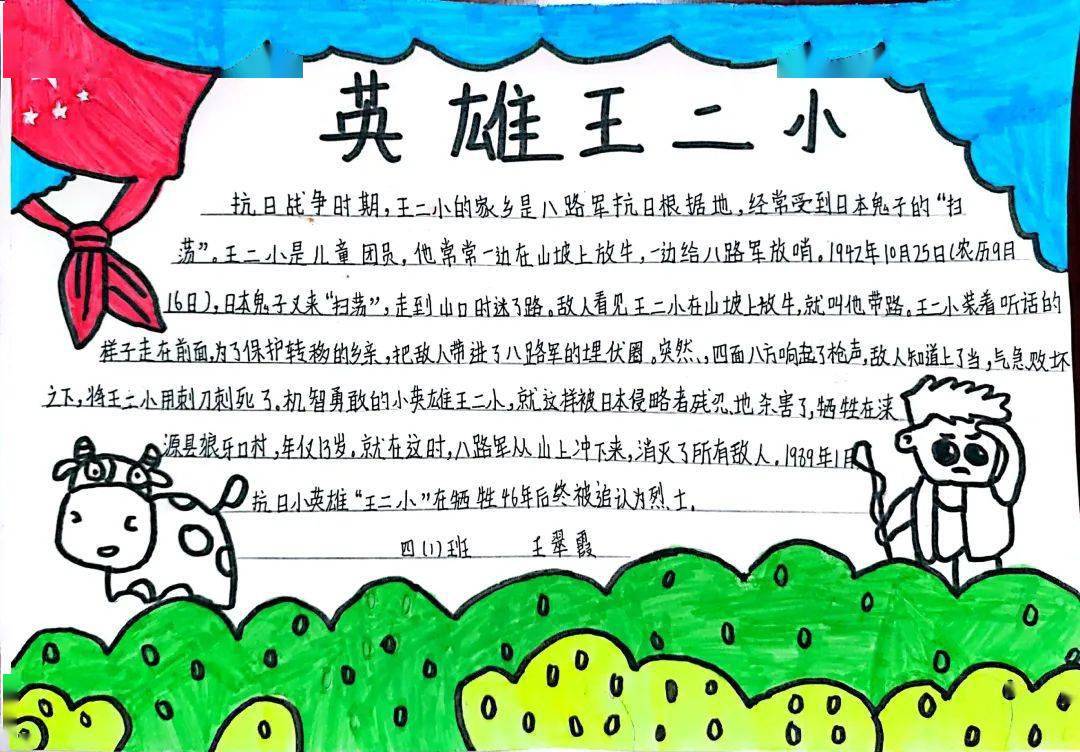 英雄王二小
抗日战争时期,王二小的家乡是八路军抗日根据地,经常受到日本鬼子的“扫
荡”。王二小是儿童团员,他常常一边在山坡上放牛,一边给八路军放哨。1942年10月25日(农历9月
16日),日本鬼子又来“扫荡”,走到山口时迷了路。敌人看见王二小在山坡上放牛,就叫他带路。王二小装着听话的
样子走在前面,为了保护转移的乡亲,把敌人带进了八路军的埋伏圈。突然,四面八方响起了枪声,敌人知道上了当,气急败坏
之下,将王二小用刺刀刺死了。机智勇敢的小英雄王二小,就这样被日本侵略者残忍地杀害了,牺牲在涞
源县狼牙口村,年仅13岁。就在这时,八路军从山上冲下来,消灭了所有敌人。1989年1月
抗日小英雄“王二小”在牺牲46年后终被追认为烈士。
四(1)班 王翠霞